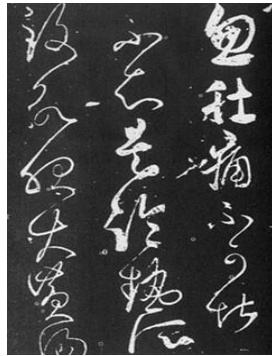 忽肚痛不可堪
不知是冷熱所
致欲服大黄湯